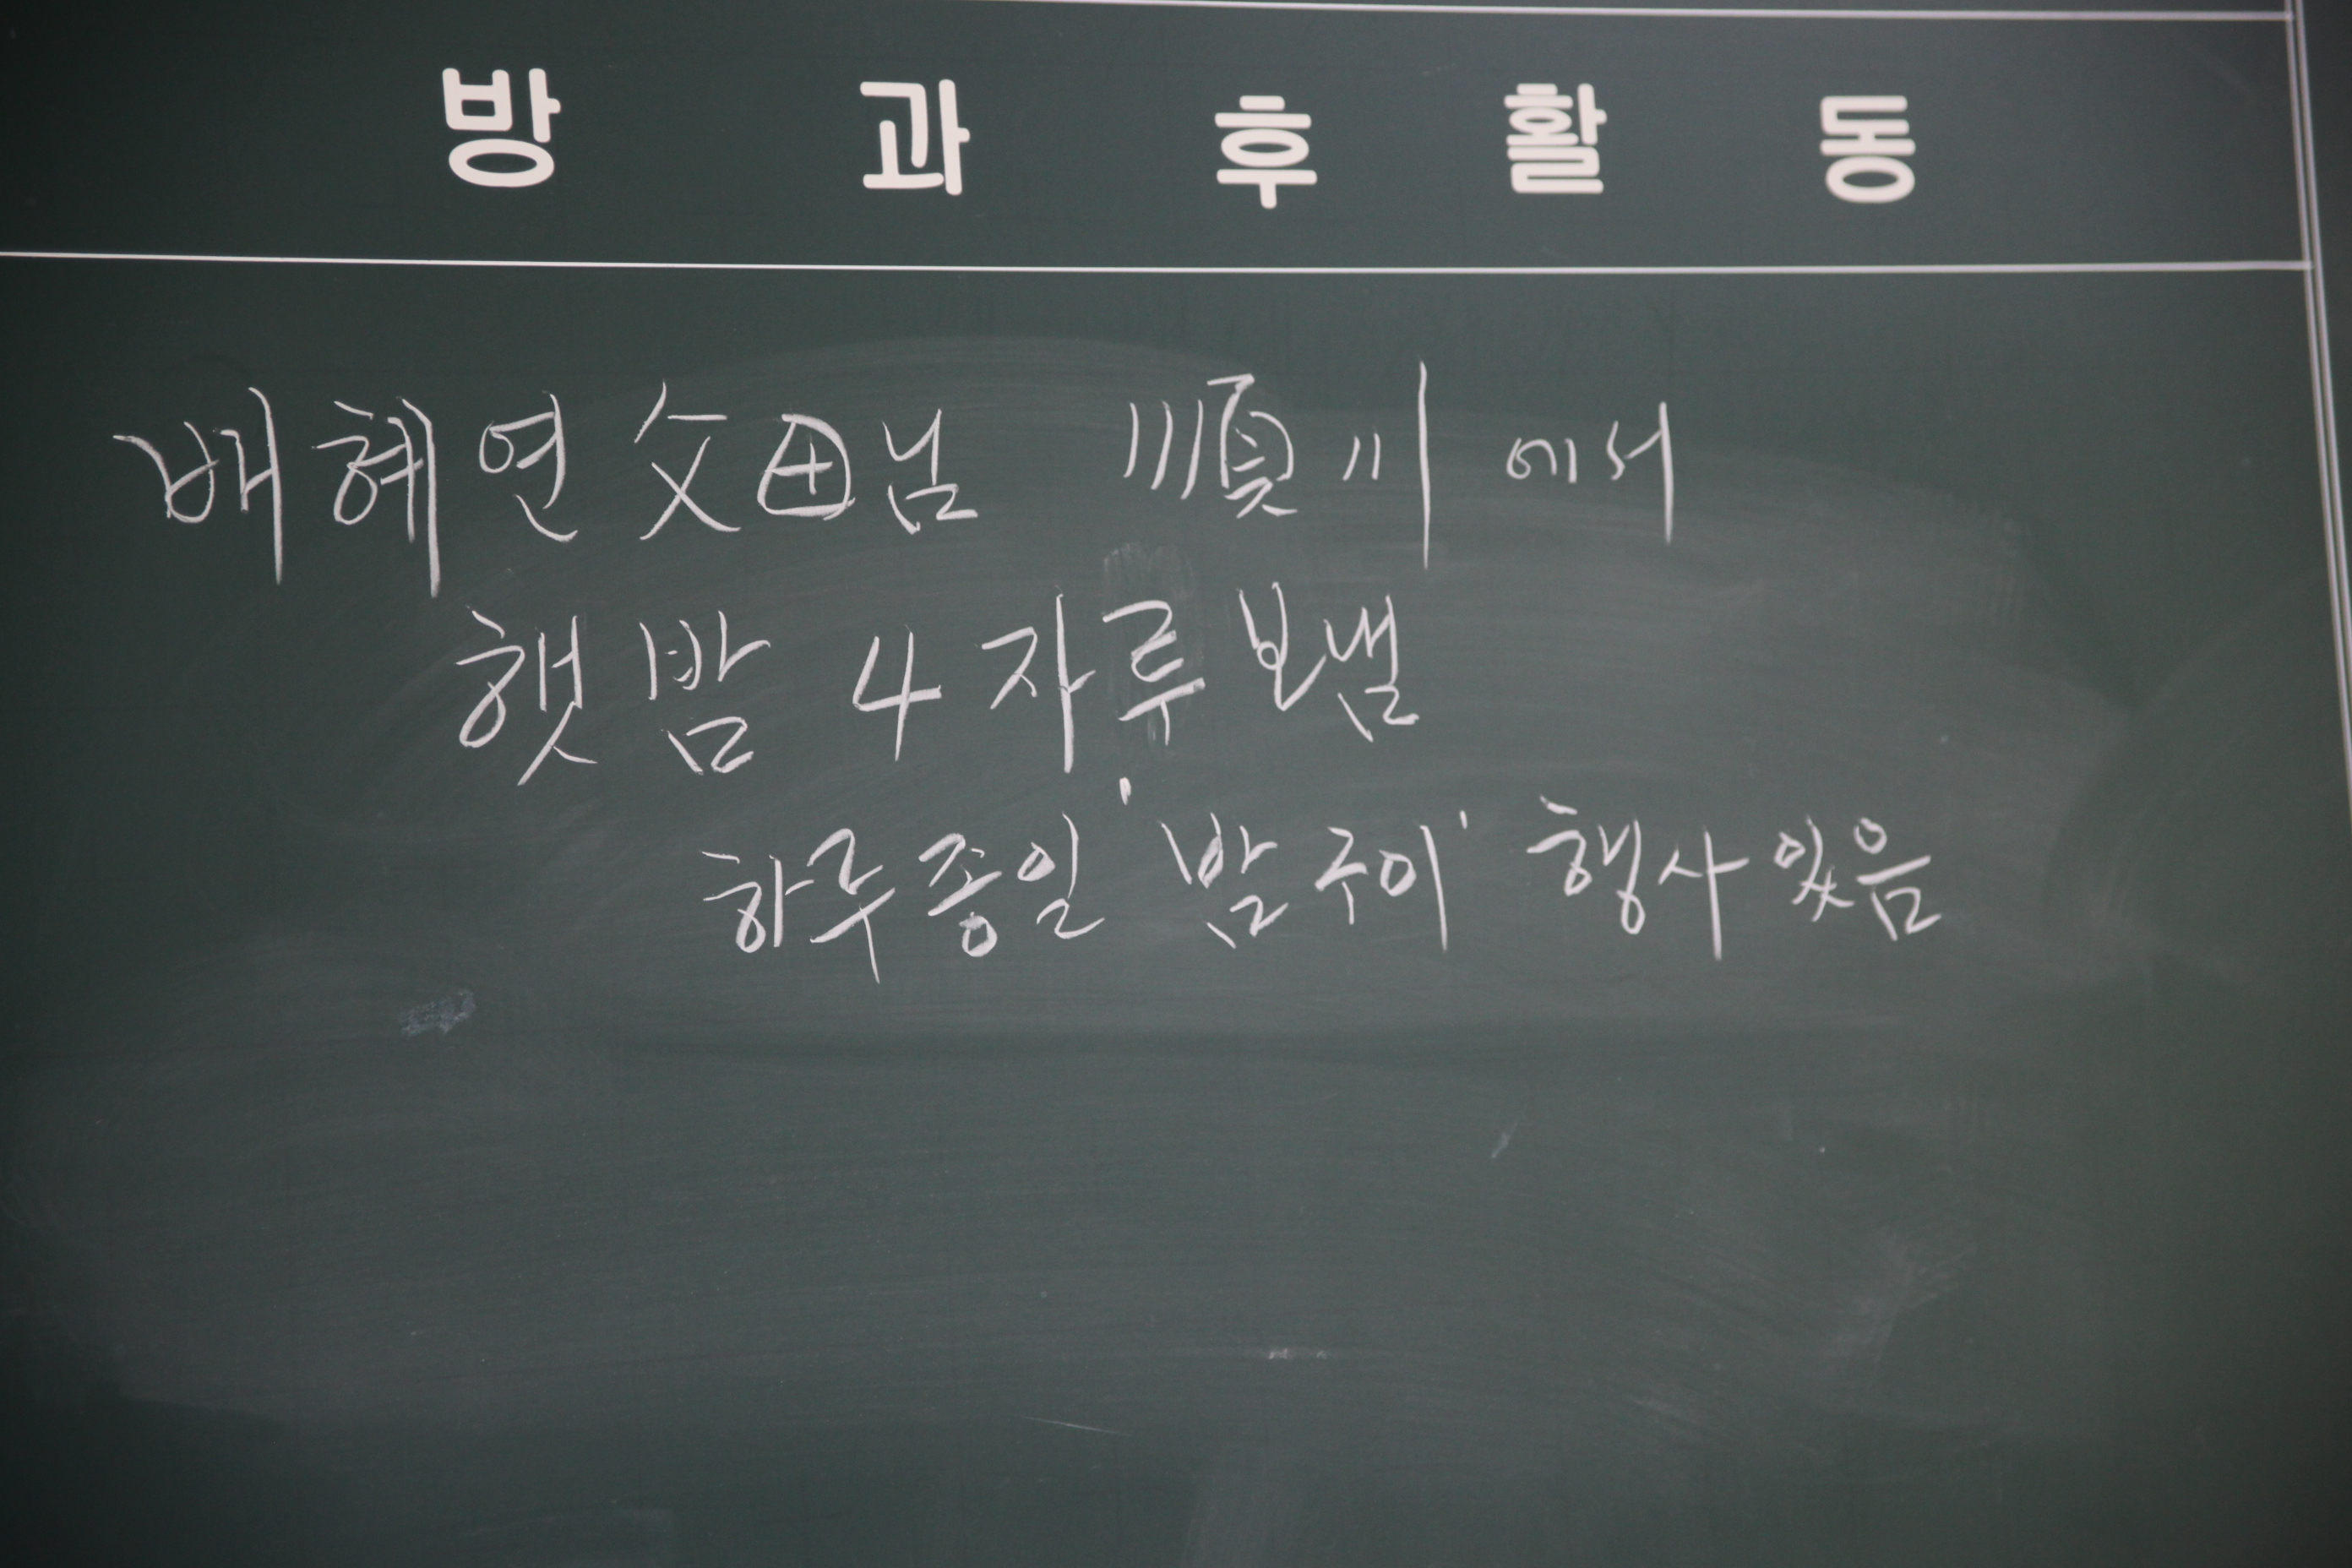 방과후활동
배혜연 父母님 順川에서
햇밤 4자루 보냄
하루종일 '밤구이' 행사 있음